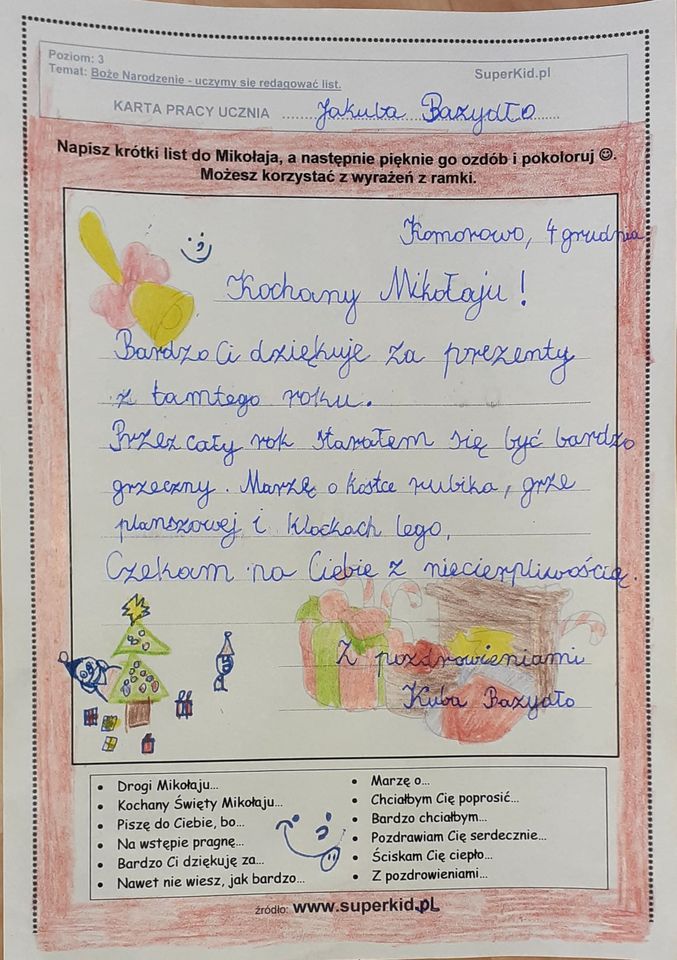 Poziom: 3
Temat: Boże Narodzenie - uczymy się redagować list.
SuperKid.pl
KARTA PRACY UCZNIA ........Jakuba Bazydło........
Napisz krótki list do Mikołaja, a następnie pięknie go ozdób i pokoloruj ☺.
Możesz korzystać z wyrażeń z ramki.
Komorowo, 4 grudnia
Kochany Mikołaju!
Bardzo Ci dziękuje za prezenty
z tamtego roku.
Przez cały rok starałem się być bardzo
grzeczny. Marzę o kostce rubika, grze
planszowej i klockach lego.
Czekam na Ciebie z niecierpliwością.
Z pozdrowieniami
Kuba Bazydło
• Drogi Mikołaju...
• Kochany Święty Mikołaju...
• Piszę do Ciebie, bo...
• Na wstępie pragnę...
• Bardzo Ci dziękuję za...
• Nawet nie wiesz, jak bardzo...
• Marzę o...
• Chciałbym Cię poprosić...
• Bardzo chciałbym...
• Pozdrawiam Cię serdecznie...
• Ściskam Cię ciepło...
• Z pozdrowieniami...
źródło: www.superkid.pl